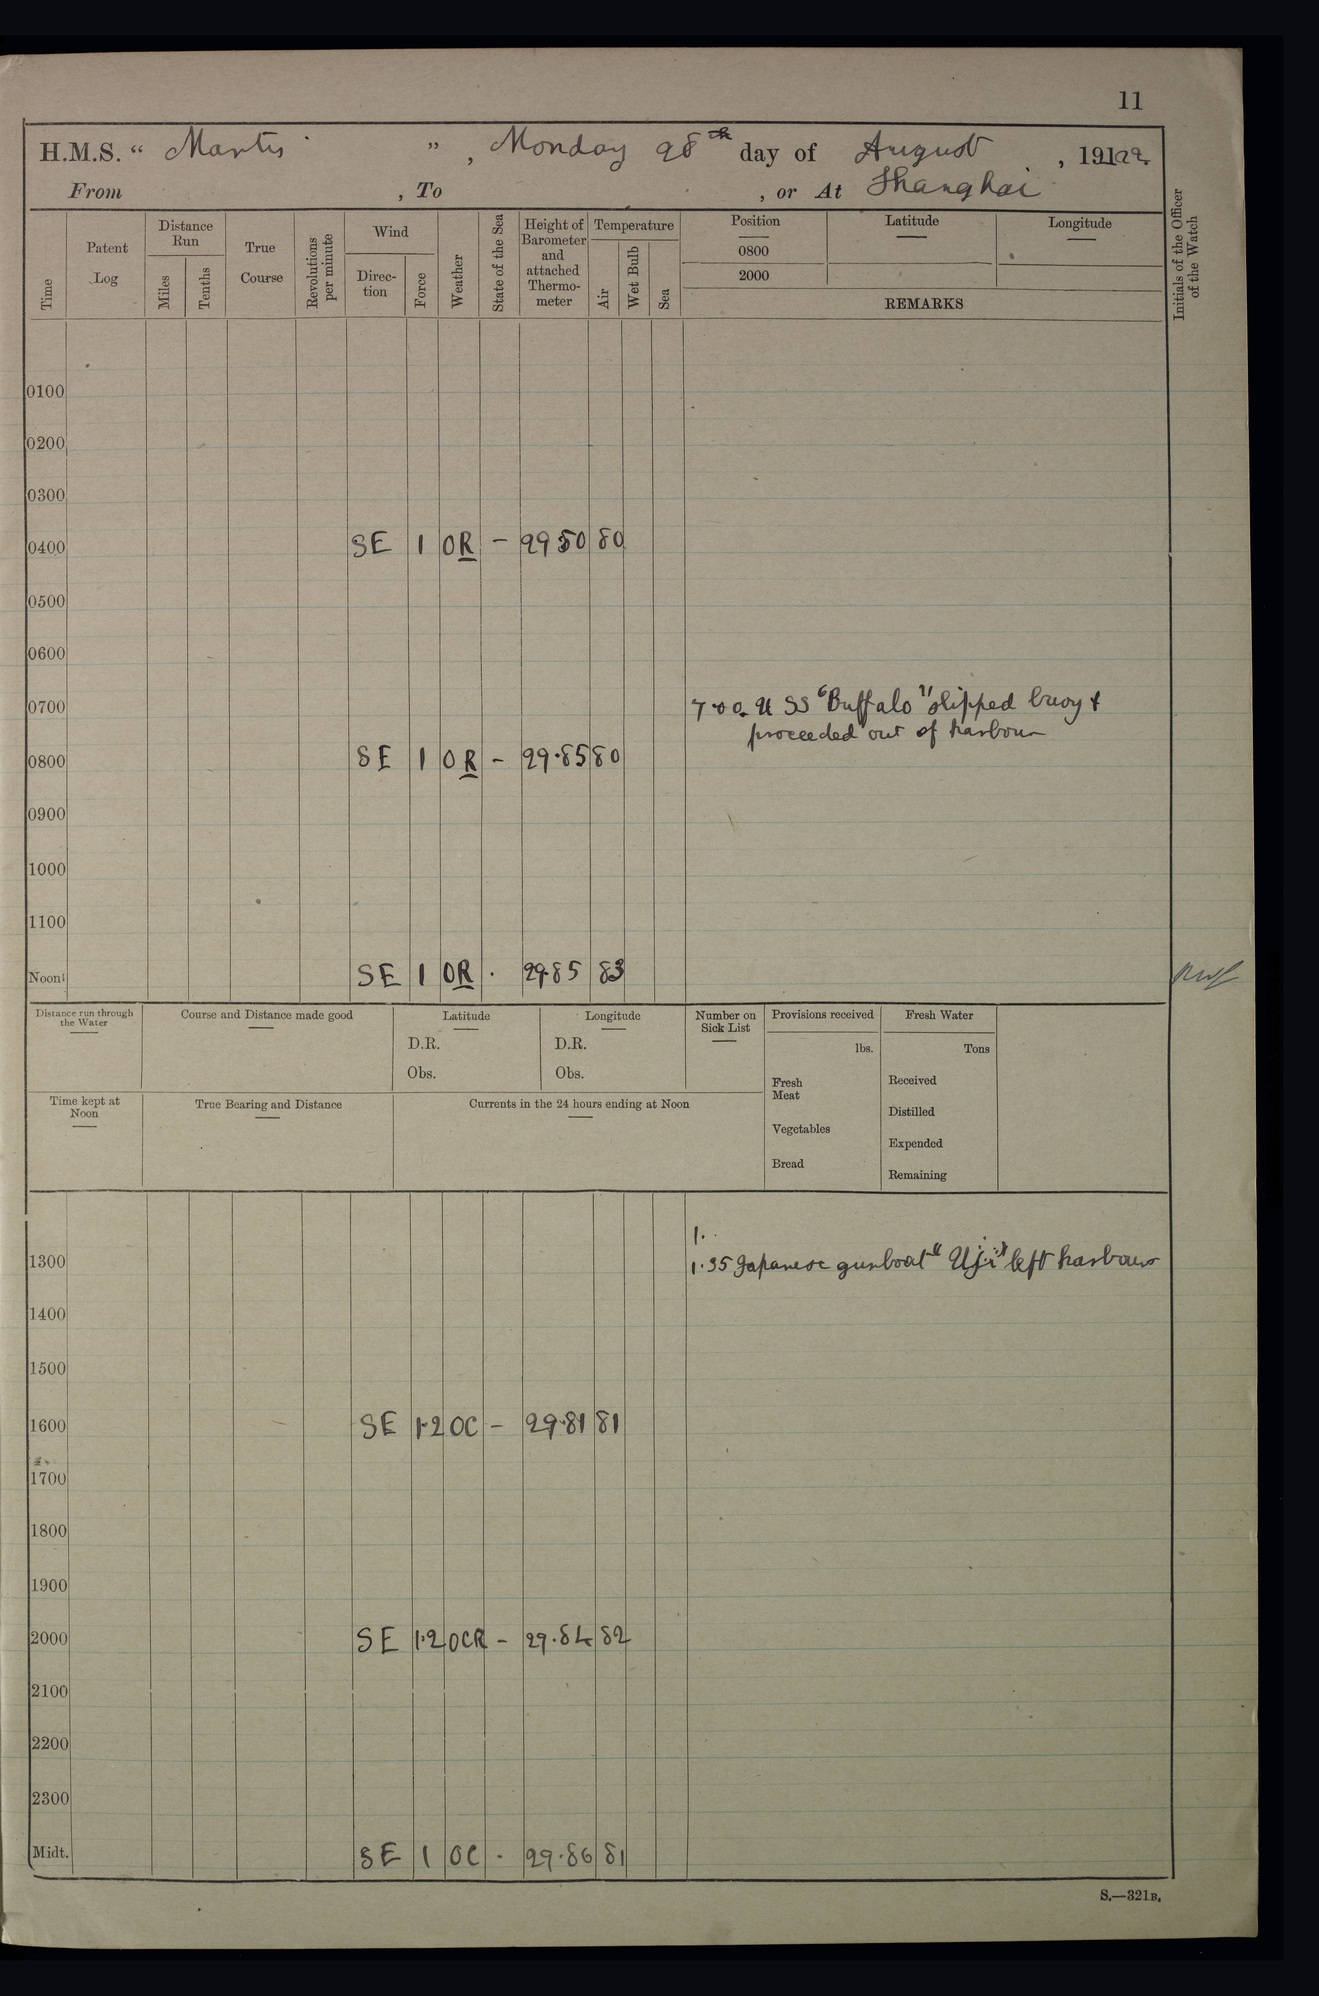 11
H.M.S. “ Mantis ” , Monday 28th day of August , 191 1922
From , To , or At Shanghai
Time Patent Log Distance Run Miles Tenths True Course Revolutions per minute Wind Direc-tion Force Weather State of the Sea Height of Barometer and attached Thermo-meter Temperature Air Wet Bulb Sea Position 0800 2000 Latitude Longitude
REMARKS
Initials of the Officer of the Watch
0100
0200
0300
0400 SE 1 OR - 29 80 80
0500
0600
0700 7.00. U SS “Buffalo” slipped buoy &
proceeded out of harbour
0800 SE 1 OR - 29.85 80
0900
1000
1100
Noon SE 1 OR . 29.85 83
Distance run through the Water Course and Distance made good Latitude Longitude Number on Sick List Provisions received Fresh Water
D.R. D.R. lbs. Tons
Obs. Obs. Fresh Meat Received
Time kept at Noon True Bearing and Distance Currents in the 24 hours ending at Noon Vegetables Distilled
Bread Expended
Remaining
1.
1300 1.35 Japanese gunboat “Uji” left harbour
1400
1500
1600 SE 1.2 OC - 29.81 81
1700
1800
1900
2000 SE 1.2 OCR - 29.84 82
2100
2200
2300
Midt. SE 1 OC . 29.86 81
S.—321B.